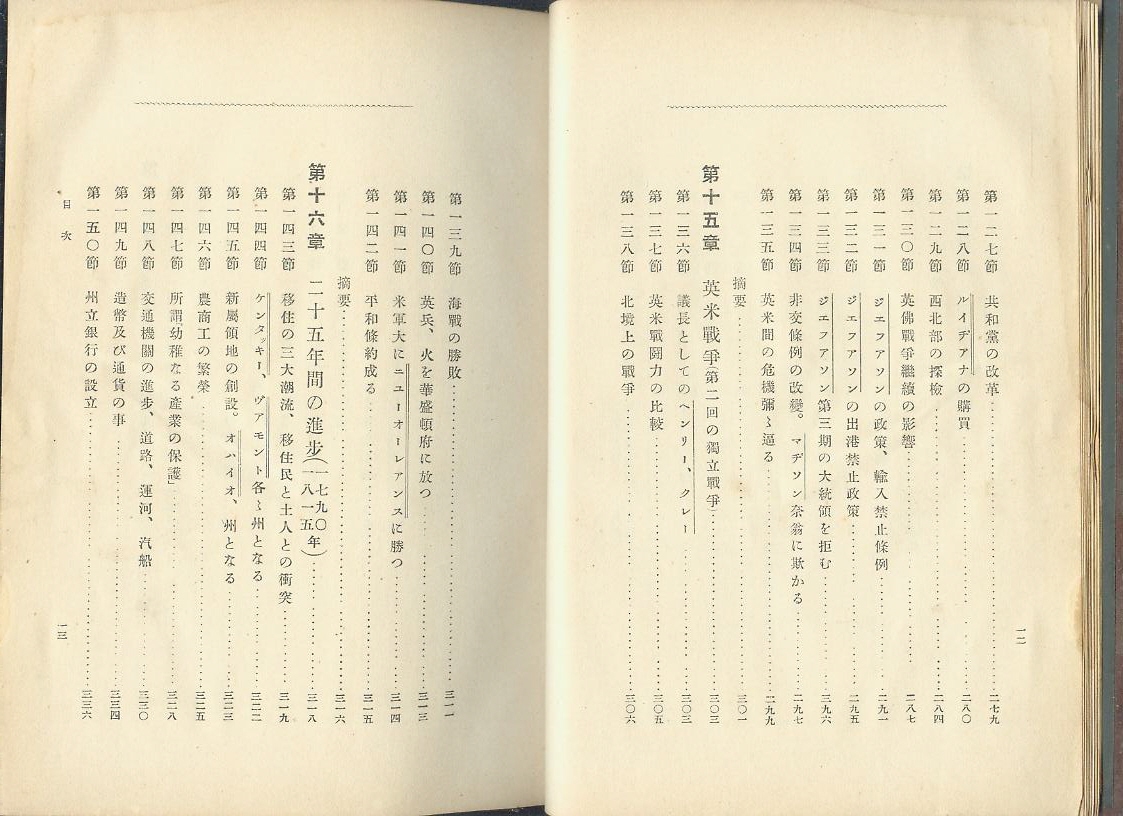 第一二七節 共和黨の改革 二七九
第一二八節 ルイヂアナの購買 二八〇
第一二九節 西北部の探檢 二八四
第一三〇節 英佛戰爭繼續の影響 二八七
第一三一節 ジエフアソンの政策、輸入禁止條例 二九一
第一三二節 ジエフアソンの出港禁止政策 二九五
第一三三節 ジエフアソン第三期の大統領を拒む 三九六
第一三四節 非交條例の改變。マヂソン奈翁に欺かる 二九七
第一三五節 英米間の危機彌〻逼る 二九九
摘要 三〇一
第十五章 英米戰爭(第二回の獨立戰爭) 三〇三
第一三六節 議長としてのヘンリー、クレー 三〇三
第一三七節 英米戰鬪力の比較 三〇五
第一三八節 北境上の戰爭 三〇六
一二
第一三九節 海戰の勝敗 三一一
第一四〇節 英兵、火を華盛頓府に放つ 三一三
第一四一節 米軍大にニユーオーレアンスに勝つ 三一四
第一四二節 平和條約成る 三一五
摘要 三一六
第十六章 二十五年間の進步(一七九〇年一八一五年) 三一八
第一四三節 移住の三大潮流、移住民と土人との衝突 三一九
第一四四節 ケンタッキー、ヴアモント各〻州となる 三二二
第一四五節 新屬領地の創設。オハイオ、州となる 三二三
第一四六節 農南工の繁榮 三二五
第一四七節 所謂幼稚なる產業の保護」 三二八
第一四八節 交通機關の進步、道路、運河、汽船 三三〇
第一四九節 造幣及び通貨の事 三三四
第一五〇節 州立銀行の設立 三三六
目次
一三